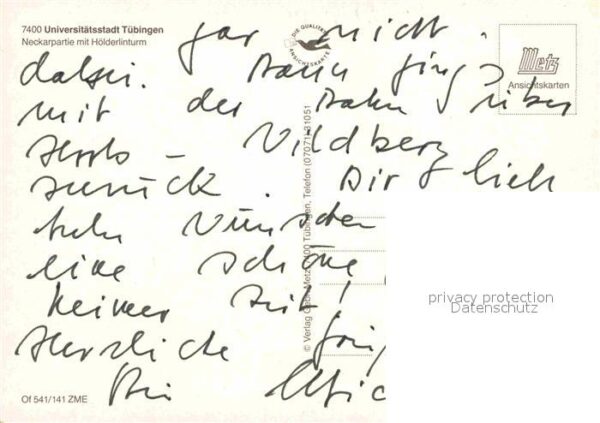 7400 Universitätsstadt Tübingen
Neckarpartie mit Hölderlinturm
DIE QUALITÄTS ANSICHTSKARTE
Metz
Ansichtskarten
gar nicht
dabei. Dann ging's
mit der Bahn über
Wildberg
zurück. Dir
wünschen
eine schöne
Zeit!
Herzliche
© Verlag Gebr. Metz, 7400 Tübingen, Telefon (07071) 31051
privacy protection
Datenschutz
Of 541/141 ZME